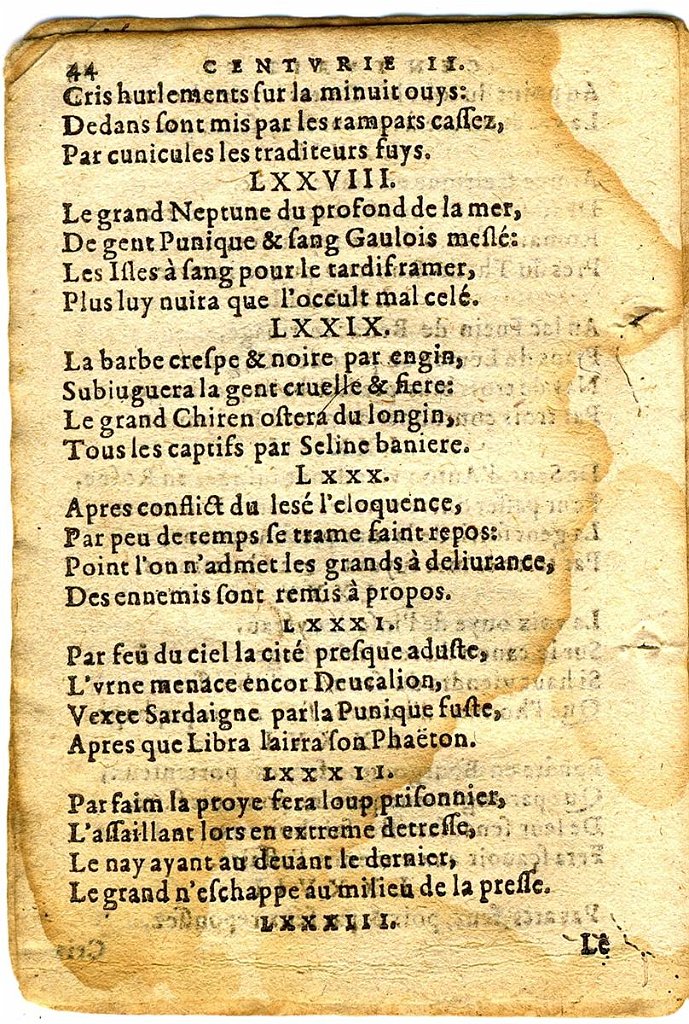 44 CENTVRIE II.
Cris hurlements ſur la minuit ouys:
Dedans ſont mis par les rampars caſſez,
Par cunicules les traditeurs fuys.
LXXVIII.
Le grand Neptune du profond de la mer,
De gent Punique & ſang Gaulois meſlé:
Les Iſles à ſang pour le tardif ramer,
Plus luy nuira que l'occult mal celé.
LXXIX.
La barbe creſpe & noire par engin,
Subiuguera la gent cruelle & fiere:
Le grand Chiren oſtera du longin,
Tous les captifs par Seline baniere.
LXXX.
Apres conflict du lesé l'eloquence,
Par peu de temps ſe trame faint repos:
Point l'on n'admet les grands à deliurance,
Des ennemis ſont remis à propos.
LXXXI.
Par feu du ciel la cité preſque aduſte,
L'vrne menace encor Deucalion,
Vexee Sardaigne par la Punique fuſte,
Apres que Libra lairra ſon Phaëton.
LXXXII.
Par faim la proye fera loup priſonnier,
L'aſſaillant lors en extreme detreſſe,
Le nay ayant au deuant le dernier,
Le grand n'eſchappe au milieu de la preſſe.
LXXXIII.
Le